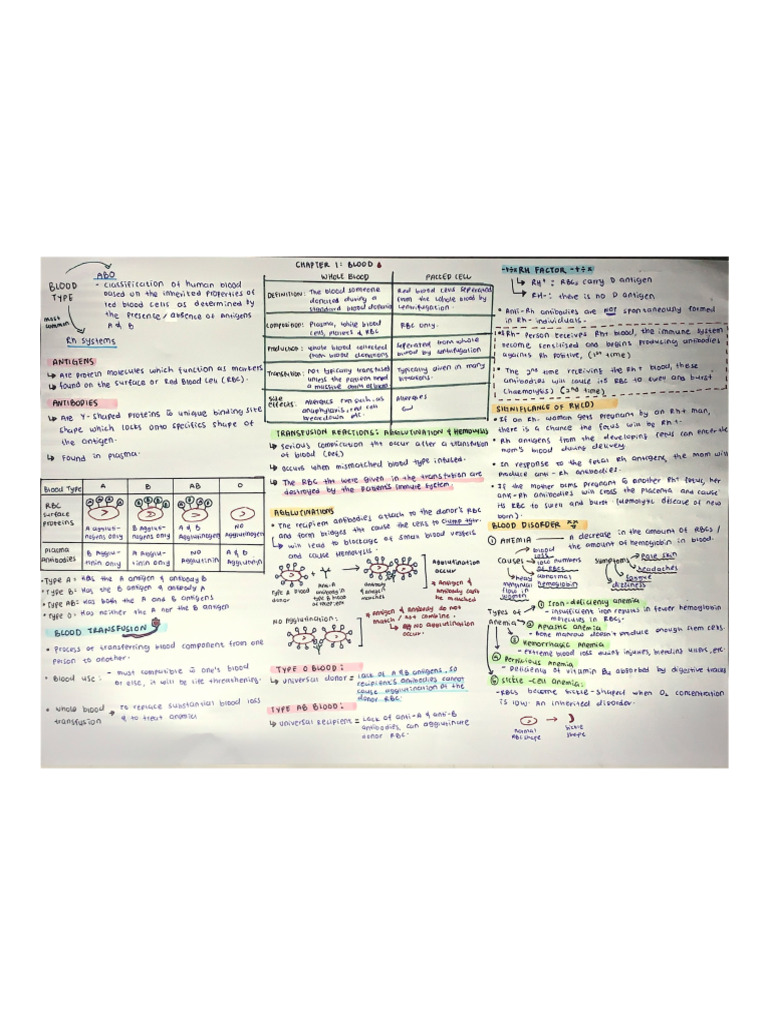 CHAPTER 1: BLOOD
BLOOD TYPE
ABO
• Classification of human blood
based on the inherited properties of
red blood cells as determined by
the presence / absence of antigens
A & B
most common
Rh systems
ANTIGENS
↳ Are protein molecules which function as markers
↳ found on the surface of Red Blood Cell (RBC).
ANTIBODIES
↳ Are Y-shaped proteins unique binding site
shape which locks onto specifics shape of
the antigen.
↳ Found in plasma.
Blood Type A B AB O
RBC surface proteins
A agglutinogens only
B agglutinogens only
A & B Agglutinogens
NO Agglutinogen
Plasma Antibodies
B Agglutinin only
A agglutinin only
NO Agglutinin
A & B Agglutinin
• Type A: RBC the A antigen & antibody B
• Type B: Has the B antigen & antibody A
• Type AB: Has both the A and B antigens
• Type O: Has neither the A nor the B antigen
BLOOD TRANSFUSION
• Process of transferring blood component from one
person to another.
• Blood use: - must compatible one's blood
or else, it will be life threathening.
• Whole blood transfusion → to replace substantial blood loss
& to treat anemia
WHOLE BLOOD
PACKED CELL
Definition: The blood someone
donated during a
standard blood donation
Red blood cells separated
from the whole blood by
centrifugation.
Composition: Plasma, white blood
cells, platelets & RBC
RBC only.
Production: Whole blood collected
from blood donations
Separated from whole
blood by centrifugation
Transfusion: Not typically transfused
unless the patient need
a massive blood
Typically given in many
situations.
Side effects: Allergies such as
anaphylaxis, red cell
breakdown etc.
Allergies
TRANSFUSION REACTIONS: AGGLUTINATION & HEMOLYSIS
↳ Serious complication tht occur after a transfusion
of blood (Def)
↳ occurs when mismatched blood type infused.
↳ The RBC tht were given in the transfution are
destroyed by the patient's immune system.
AGGLUTINATIONS
• The recipient antibodies attach to the donor's RBC
and form bridges tht cause the cells to clump tgt.
↳ will lead to blockage of small blood vessels
and cause Hemolysis.
Type A blood donor
Anti-A antibody in type B blood of recipient
Antibody & antigen matched
Agglutination occur
↳ Antigen & Antibody can be matched
NO Agglutination:
• Antigen & Antibody do not
match / not combine.
↳ no agglutination
occur.
TYPE O BLOOD:
↳ universal donor = Lack of A & B antigens, so
recipient's antibodies cannot
cause agglutination of the
donor RBC
TYPE AB BLOOD:
↳ Universal Recipient = Lack of anti-A & anti-B
antibodies, can agglutinate
donor RBC.
RH FACTOR
↳ RH+: RBCs carry D antigen
↳ RH-: there is no D antigen
• Anti-Rh antibodies are not spontaneously formed
in Rh- individuals.
• Rh- Person receives Rh+ blood, the immune system
become sensitised and begins producing antibodies
against Rh positive, (1st time)
• The 2nd time receiving the Rh+ blood, these
antibodies will cause its RBC to swell and burst
(haemolysis) (2nd time)
SIGNIFICANCE OF RH(D)
• If an Rh- woman gets pregnant by an Rh+ man,
there is a chance the fetus will be Rh+.
• Rh antigens from the developing fetus can enter the
mom's blood during delivery.
• In response to the fetal Rh antigens, the mom will
produce anti-Rh antibodies.
• If the Mother turns pregnant another Rh+ fetus, her
anti-Rh antibodies will cross the placenta and cause
its RBC to swell and burst (Hemolytic disease of new
born).
BLOOD DISORDER
① ANEMIA → a decrease in the amount of RBCs /
the amount of hemoglobin in blood.
causes
blood loss
low numbers of RBCs
abnormal hemoglobin
heavy menstrual flow in women
Symptoms
Pale skin
headaches
fatigue
dizziness
Types of Anemia
① Iron-deficiency anemia
- insufficient iron results in fewer hemoglobin
molecules in RBCs.
② Aplastic anemia
- bone marrow doesn't produce enough stem cells.
③ Hemorrhagic Anemia
- extreme blood loss injuries, bleeding ulcers, etc.
④ Pernicious Anemia
- Deficiency of vitamin B12 absorbed by digestive tracts
⑤ Sickle-cell anemia:
- RBCs become sickle-shaped when O2 concentration
is low. An inherited disorder.
normal RBC shape
Sickle shape